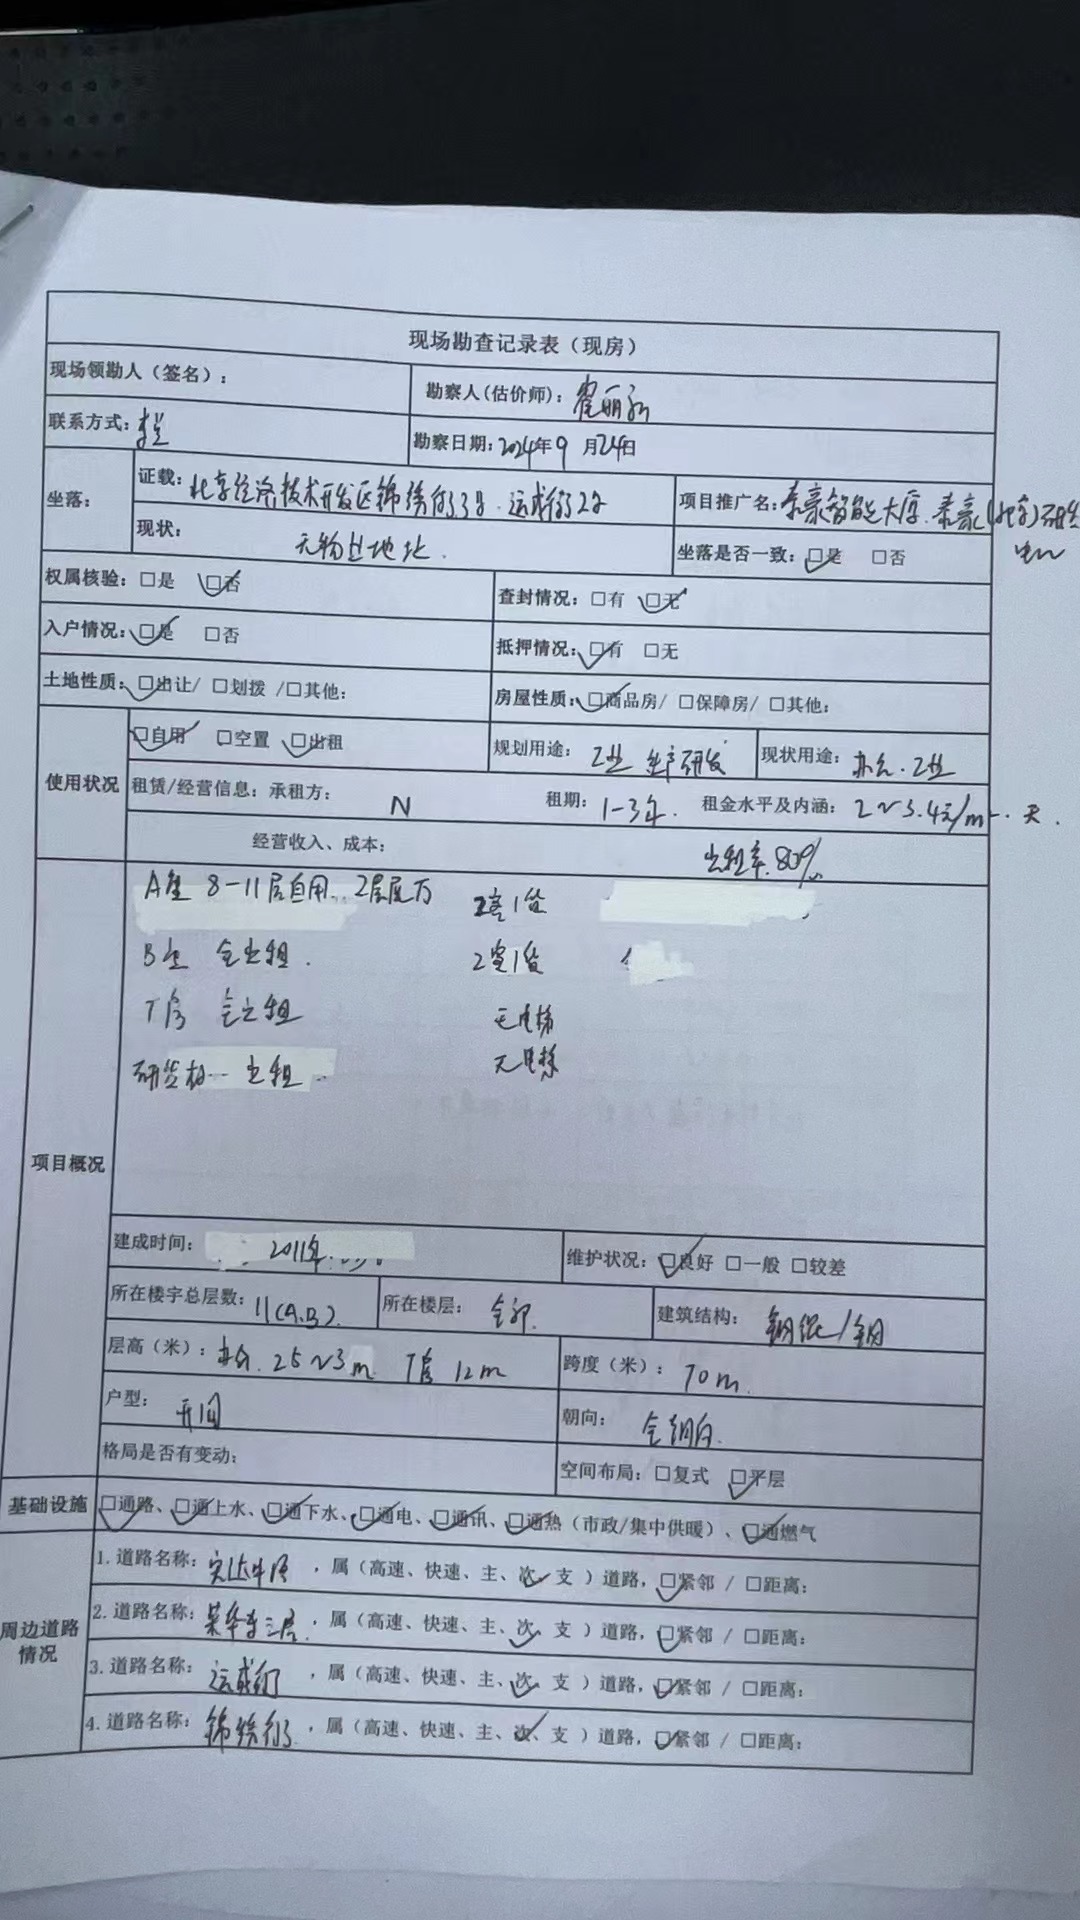 现场勘查记录表（现房）
现场领勘人（签名）：
勘察人(估价师)：
联系方式：
勘察日期：2024年9月24日
坐落：
证载：北京经济技术开发区锦绣街3号.运成街2号
项目推广名：泰豪智能大厦.泰豪(北京)研发
中心
现状：
无物业地址.
坐落是否一致：□是 □否
权属核验：□是 □否
查封情况：□有 □无
入户情况：□是 □否
抵押情况：□有 □无
土地性质：□出让/ □划拨 /□其他：
房屋性质：□商品房/ □保障房/ □其他：
使用状况
□自用 □空置 □出租
规划用途：工业 生产研发
现状用途：办公.工业
租赁/经营信息：承租方：N 租期：1-3年. 租金水平及内涵：2~3.4元/m².天.
经营收入、成本：
出租率.80%
项目概况
A座 8-11层自用 2客1货
B座 全出租. 2客1货
厂房 全出租 无电梯
出租 无电梯
建成时间：2011年
维护状况：□良好 □一般 □较差
所在楼宇总层数：11(A.B).
所在楼层：全部.
建筑结构：钢混/钢
层高（米）：办公.2.5~3m 厂房 12m
跨度（米）：70m.
户型：开间
朝向：全朝向.
格局是否有变动：
空间布局：□复式 □平层
基础设施
□通路、□通上水、□通下水、□通电、□通讯、□通热（市政/集中供暖）、□通燃气
周边道路情况
1. 道路名称： ，属（高速、快速、主、次、支 ）道路，□紧邻 / □距离：
2. 道路名称：荣华东三路，属（高速、快速、主、次、支 ）道路，□紧邻 / □距离：
3. 道路名称：运成街，属（高速、快速、主、次、支 ）道路，□紧邻 / □距离：
4. 道路名称：锦绣街，属（高速、快速、主、次、支 ）道路，□紧邻 / □距离：